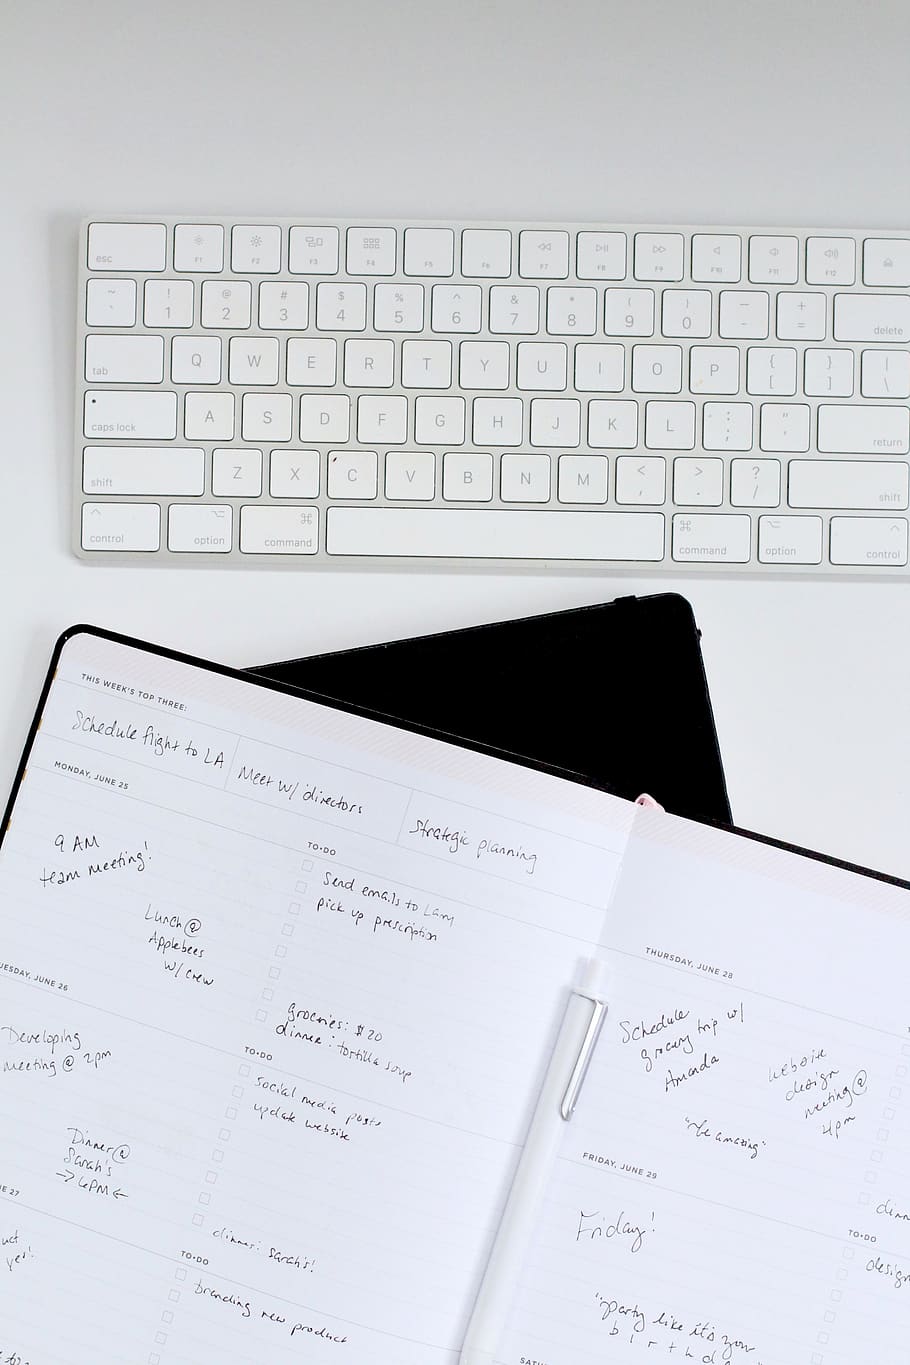 esc F1 F2 F3 F4 F5 F6 F7 F8 F9 F10 F11 F12
~ ! @ # $ % ^ & * ( ) — +
` 1 2 3 4 5 6 7 8 9 0 - = delete
tab Q W E R T Y U I O P { [ } ] | \
caps lock A S D F G H J K L : ; " ' return
shift Z X C V B N M < , > . ? / shift
control option command command option control
THIS WEEK'S TOP THREE:
Schedule flight to LA
Meet w/ directors
strategic planning
MONDAY, JUNE 25
9 AM
team meeting!
Lunch @
Applebees
w/ crew
TO-DO
Send emails to Larry
pick up prescription
groceries: $20
dinner: tortilla soup
UESDAY, JUNE 26
Developing
meeting @ 2pm
Dinner @
Sarah's
→ 6PM ←
TO-DO
social media posts
update website
dinner: Sarah's!
E 27
uct
yes!
TO-DO
branding new product
THURSDAY, JUNE 28
Schedule
grocery trip w/
Amanda
website
design
meeting @
4pm
"be amazing"
dinn
FRIDAY, JUNE 29
Friday!
"party like it's your
b i r t h d
TO-DO
design
SATU